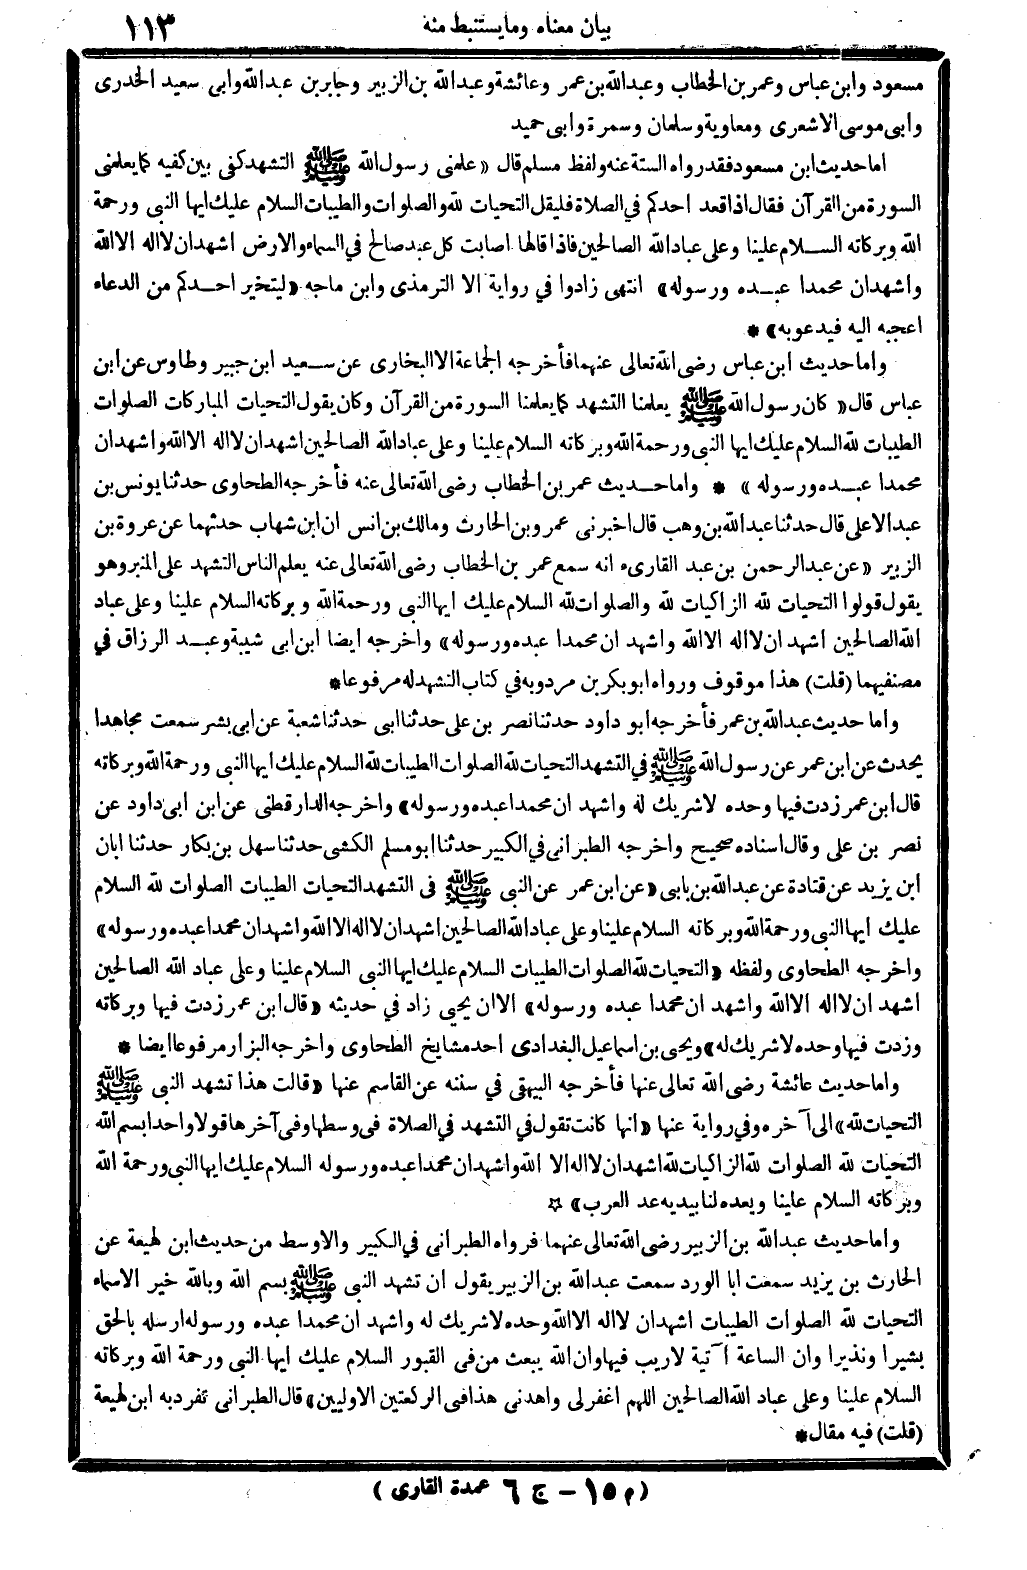 بيان معناه ومايستنبط منه
١١٣
مسعود وابن عباس وعمر بن الخطاب وعبدالله بن عمر وعائشة وعبدالله بن الزبير وجابر بن عبدالله وابى سعيد الخدرى
وابى موسى الاشعرى ومعاوية وسلمان وسمرة وابى حميد
اما حديث ابن مسعود فقد رواه الستة عنه ولفظ مسلم قال «علمنى رسول الله ﷺ التشهد كفى بين كفيه كما يعلمنى
السورة من القرآن فقال اذا قعد احدكم في الصلاة فليقل التحيات لله والصلوات والطيبات السلام عليك ايها النبى ورحمة
الله وبركاته السلام علينا وعلى عباد الله الصالحين فاذا قالها اصابت كل عبد صالح في السماء والارض اشهد ان لااله الا الله
واشهد ان محمدا عبده ورسوله» انتهى زادوا في رواية الا الترمذى وابن ماجه «ليتخير احدكم من الدعاء
اعجبه اليه فيدعو به» *
واما حديث ابن عباس رضى الله تعالى عنهما فأخرجه الجماعة الا البخارى عن سعيد ابن جبير وطاوس عن ابن
عباس قال «كان رسول الله ﷺ يعلمنا التشهد كما يعلمنا السورة من القرآن وكان يقول التحيات المباركات الصلوات
الطيبات لله السلام عليك ايها النبى ورحمة الله وبركاته السلام علينا وعلى عباد الله الصالحين اشهد ان لااله الا الله واشهد ان
محمدا عبده ورسوله» * واما حديث عمر بن الخطاب رضى الله تعالى عنه فأخرجه الطحاوى حدثنا يونس بن
عبد الاعلى قال حدثنا عبد الله بن وهب قال اخبرنى عمرو بن الحارث ومالك بن انس ان ابن شهاب حدثهما عن عروة بن
الزبير «عن عبد الرحمن بن عبد القارىء انه سمع عمر بن الخطاب رضى الله تعالى عنه يعلم الناس التشهد على المنبر وهو
يقول قولوا التحيات لله الزاكيات لله والصلوات لله السلام عليك ايها النبى ورحمة الله وبركاته السلام علينا وعلى عباد
الله الصالحين اشهد ان لااله الا الله واشهد ان محمدا عبده ورسوله» واخرجه ايضا ابن ابى شيبة وعبد الرزاق في
مصنفيهما (قلت) هذا موقوف ورواه ابو بكر بن مردويه في كتاب التشهد له مرفوعا *
واما حديث عبد الله بن عمر فأخرجه ابو داود حدثنا نصر بن على حدثنا ابى حدثنا شعبة عن ابى بشر سمعت مجاهدا
يحدث عن ابن عمر عن رسول الله ﷺ في التشهد التحيات لله الصلوات الطيبات لله السلام عليك ايها النبى ورحمة الله وبركاته
قال ابن عمر زدت فيها وحده لاشريك له واشهد ان محمدا عبده ورسوله» واخرجه الدارقطنى عن ابن ابى داود عن
نصر بن على وقال اسناده صحيح واخرجه الطبرانى في الكبير حدثنا ابو مسلم الكشى حدثنا سهل بن بكار حدثنا ابان
ابن يزيد عن قتادة عن عبدالله بن بابى «عن ابن عمر عن النبى ﷺ فى التشهد التحيات الطيبات الصلوات لله السلام
عليك ايها النبى ورحمة الله وبركاته السلام علينا وعلى عباد الله الصالحين اشهد ان لااله الا الله واشهد ان محمدا عبده ورسوله»
واخرجه الطحاوى ولفظه «التحيات لله الصلوات الطيبات السلام عليك ايها النبى السلام علينا وعلى عباد الله الصالحين
اشهد ان لااله الا الله واشهد ان محمدا عبده ورسوله» الا ان يحيى زاد في حديثه «قال ابن عمر زدت فيها وبركاته
وزدت فيها وحده لاشريك له» ويحيى بن اسماعيل البغدادى احد مشايخ الطحاوى واخرجه البزار مرفوعا ايضا *
واما حديث عائشة رضى الله تعالى عنها فأخرجه البيهقى في سننه عن القاسم عنها «قالت هذا تشهد النبى ﷺ
التحيات لله» الى آخره وفي رواية عنها «انها كانت تقول في التشهد في الصلاة فى وسطها وفى آخرها قولا واحدا بسم الله
التحيات لله الصلوات لله الزاكيات لله اشهد ان لااله الا الله واشهد ان محمدا عبده ورسوله السلام عليك ايها النبى ورحمة الله
وبركاته السلام علينا ويعده لنا بيديه عد العرب» ☆
واما حديث عبد الله بن الزبير رضى الله تعالى عنهما فرواه الطبرانى في الكبير والاوسط من حديث ابن لهيعة عن
الحارث بن يزيد سمعت ابا الورد سمعت عبدالله بن الزبير يقول ان تشهد النبى ﷺ بسم الله وبالله خير الاسماء
التحيات لله الصلوات الطيبات اشهد ان لااله الا الله وحده لاشريك له واشهد ان محمدا عبده ورسوله ارسله بالحق
بشيرا ونذيرا وان الساعة آتية لاريب فيها وان الله يبعث من فى القبور السلام عليك ايها النبى ورحمة الله وبركاته
السلام علينا وعلى عباد الله الصالحين اللهم اغفر لى واهدنى هذا فى الركعتين الاوليين» قال الطبرانى تفرد به ابن لهيعة
(قلت) فيه مقال *
(م ١٥ – ج ٦ عمدة القارى)